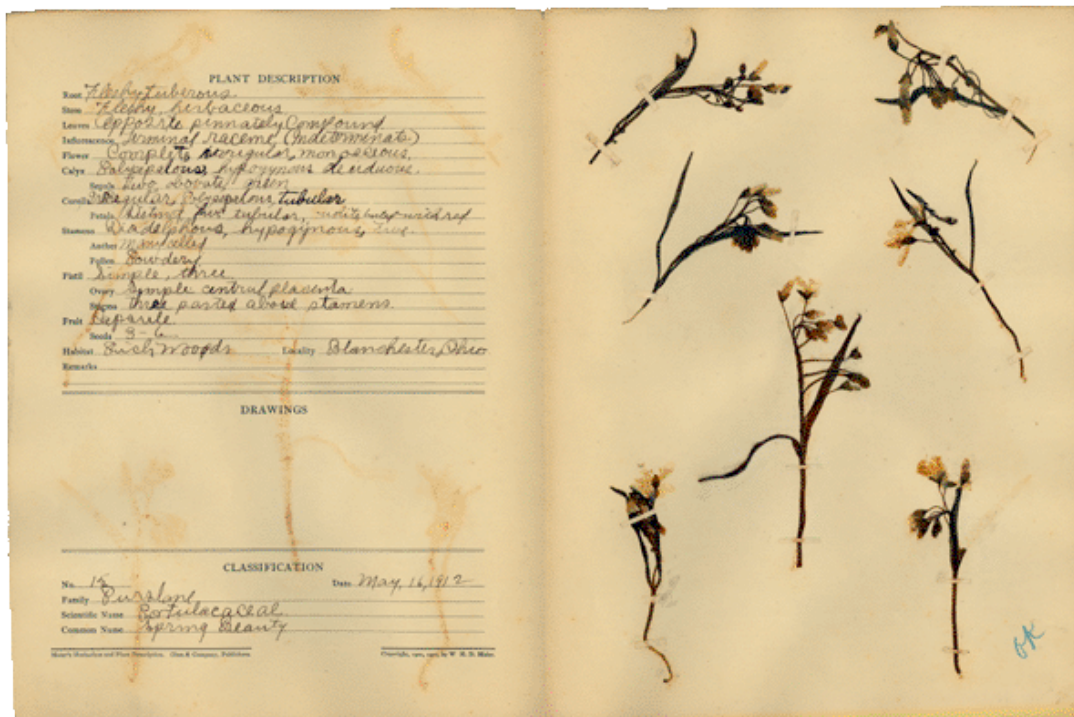 PLANT DESCRIPTION
Root Fleshy tuberous
Stem Fleshy, herbaceous
Leaves Opposite pinnately Compound
Inflorescence Terminal raceme (indeterminate)
Flower Complete, irregular, monoecious,
Calyx Polysepalous, hypogynous deciduous.
Sepals Two ovate, green
Corolla Irregular, Polysepalous, tubular
Petals Distinct five tubular, red
Stamens Diadelphous, hypogynous, five.
Anther
Pollen Powdery
Pistil Simple, three
Ovary Simple central placenta
Stigma three parted above stamens.
Fruit
Seeds 3-6
Habitat Rich Woods Locality Blanchester, Ohio
Remarks
DRAWINGS
CLASSIFICATION
No. 15 Date May, 16, 1912
Family Purslane
Scientific Name Portulacaceal
Common Name Spring Beauty
Herbarium and Plant Description. Ginn & Company, Publishers. Copyright, by W. H. D. Meier.
OK